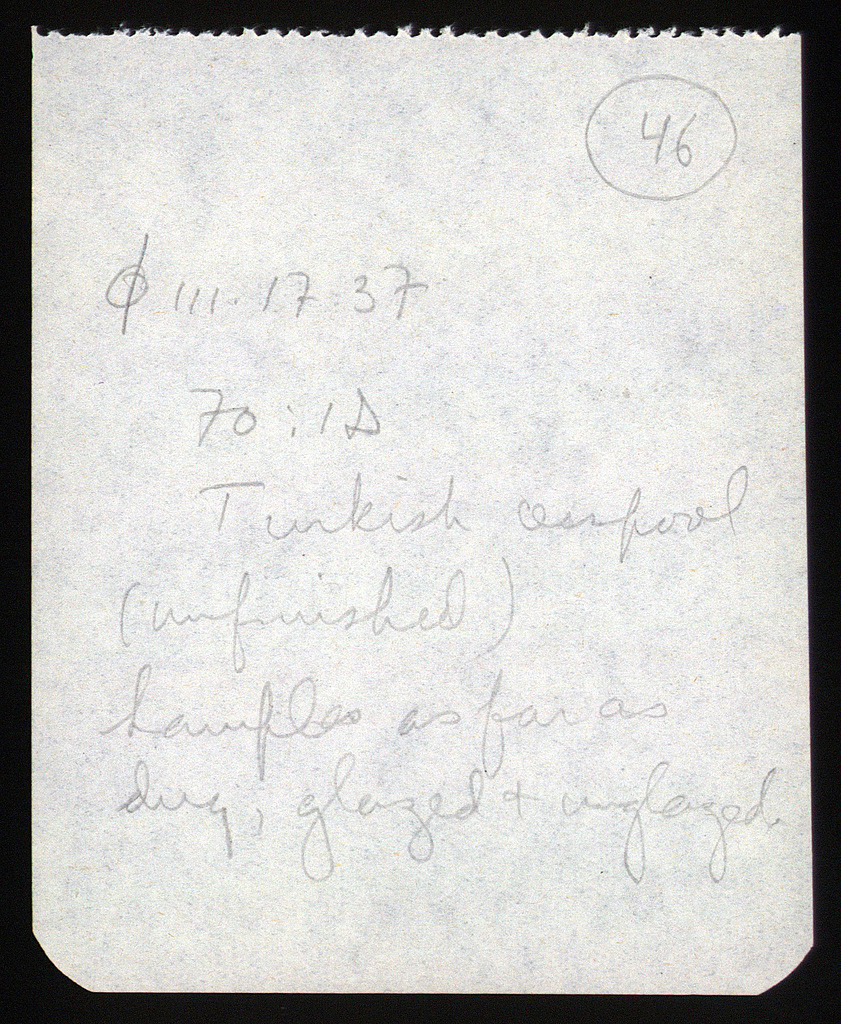 46
ϕ III · 17 · 37
70 : 1Δ
Turkish cesspool
(unfinished)
Samples as far as
dug, glazed + unglazed.